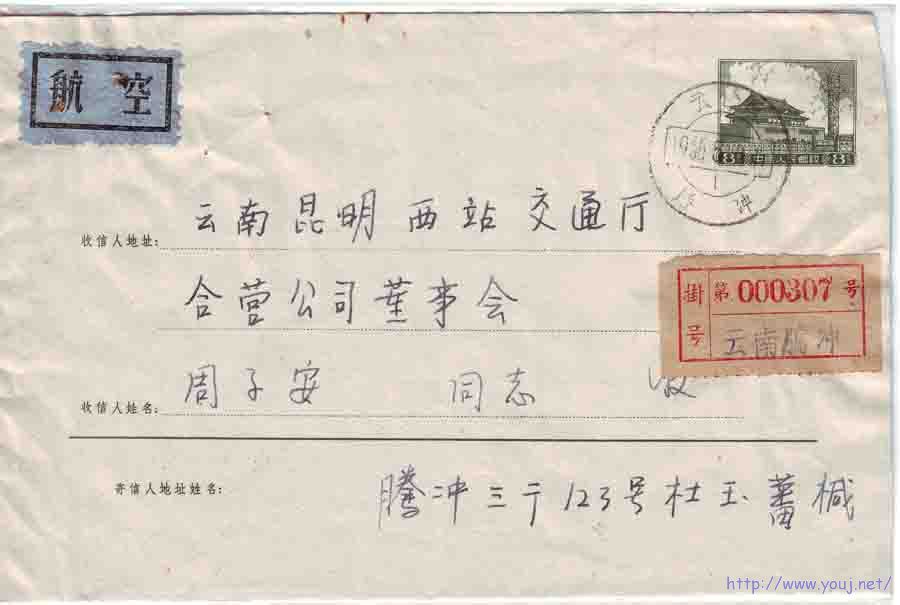 航空
8 中国人民邮政 8
云南
腾冲
收信人地址: 云南昆明西站交通厅
合营公司董事会
掛号 第 000307 号
云南腾冲
收信人姓名: 周子安 同志 收
寄信人地址姓名:
腾冲三亍123号杜玉蕃椷
http://www.youj.net/